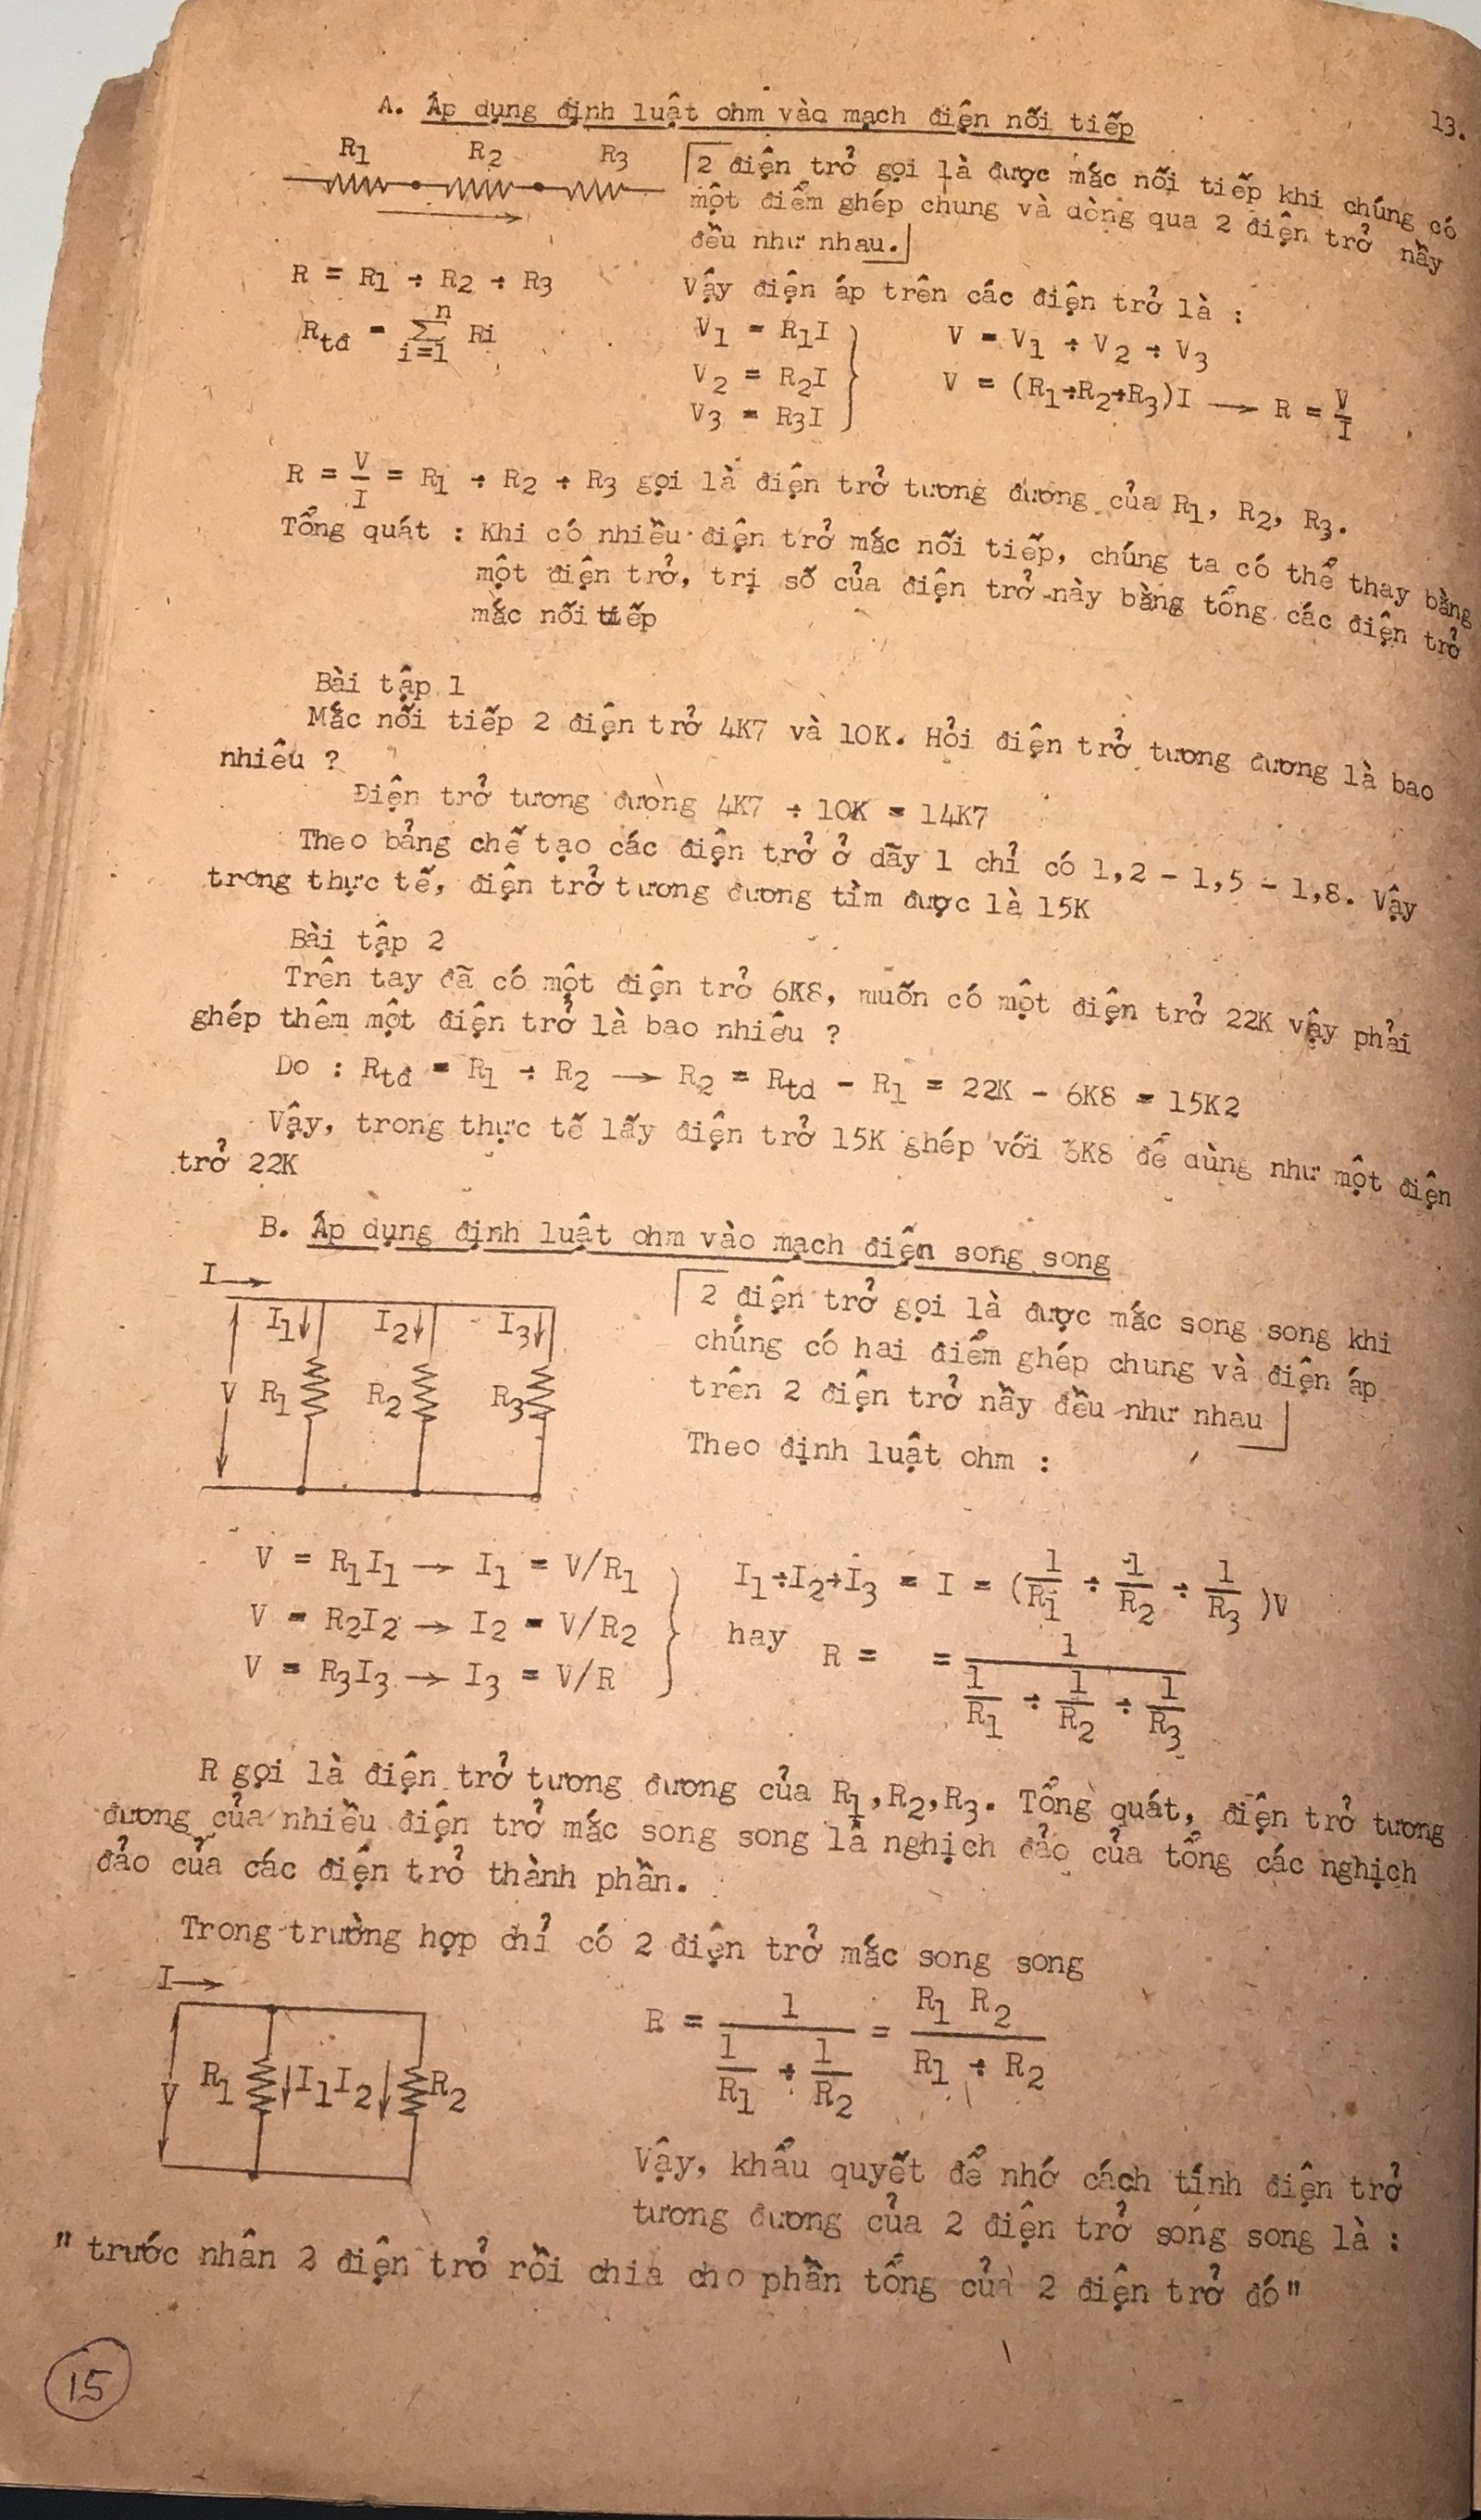 13.
A. Áp dụng định luật ohm vào mạch điện nối tiếp
R1 R2 R3
2 điện trở gọi là được mắc nối tiếp khi chúng có
một điểm ghép chung và dòng qua 2 điện trở nầy
đều như nhau.
R = R1 + R2 + R3
Rtđ = n∑i=1 Ri
Vậy điện áp trên các điện trở là :
V1 = R1I
V2 = R2I
V3 = R3I
V = V1 + V2 + V3
V = (R1+R2+R3)I → R = V/I
R = V/I = R1 + R2 + R3 gọi là điện trở tương đương của R1, R2, R3.
Tổng quát : Khi có nhiều điện trở mắc nối tiếp, chúng ta có thể thay bằng
một điện trở, trị số của điện trở này bằng tổng các điện trở
mắc nối tiếp
Bài tập 1
Mắc nối tiếp 2 điện trở 4K7 và 10K. Hỏi điện trở tương đương là bao
nhiêu ?
Điện trở tương đường 4K7 + 10K = 14K7
Theo bảng chế tạo các điện trở ở dãy 1 chỉ có 1,2 - 1,5 - 1,8. Vậy
trong thực tế, điện trở tương đương tìm được là 15K
Bài tập 2
Trên tay đã có một điện trở 6K8, muốn có một điện trở 22K vậy phải
ghép thêm một điện trở là bao nhiêu ?
Do : Rtđ = R1 + R2 → R2 = Rtđ - R1 = 22K - 6K8 = 15K2
Vậy, trong thực tế lấy điện trở 15K ghép với 6K8 để dùng như một điện
trở 22K
B. Áp dụng định luật ohm vào mạch điện song song
I
I1 I2 I3
V R1 R2 R3
2 điện trở gọi là được mắc song song khi
chúng có hai điểm ghép chung và điện áp
trên 2 điện trở nầy đều như nhau
Theo định luật ohm :
V = R1I1 → I1 = V/R1
V = R2I2 → I2 = V/R2
V = R3I3 → I3 = V/R
I1+I2+I3 = I = (1/R1 + 1/R2 + 1/R3)V
hay R = = 1/(1/R1 + 1/R2 + 1/R3)
R gọi là điện trở tương đương của R1,R2,R3. Tổng quát, điện trở tương
đương của nhiều điện trở mắc song song là nghịch đảo của tổng các nghịch
đảo của các điện trở thành phần.
Trong trường hợp chỉ có 2 điện trở mắc song song
I
V R1 I1 I2 R2
R = 1/(1/R1 + 1/R2) = R1 R2/(R1 + R2)
Vậy, khẩu quyết để nhớ cách tính điện trở
tương đương của 2 điện trở song song là :
" trước nhân 2 điện trở rồi chia cho phần tổng của 2 điện trở đó"
15